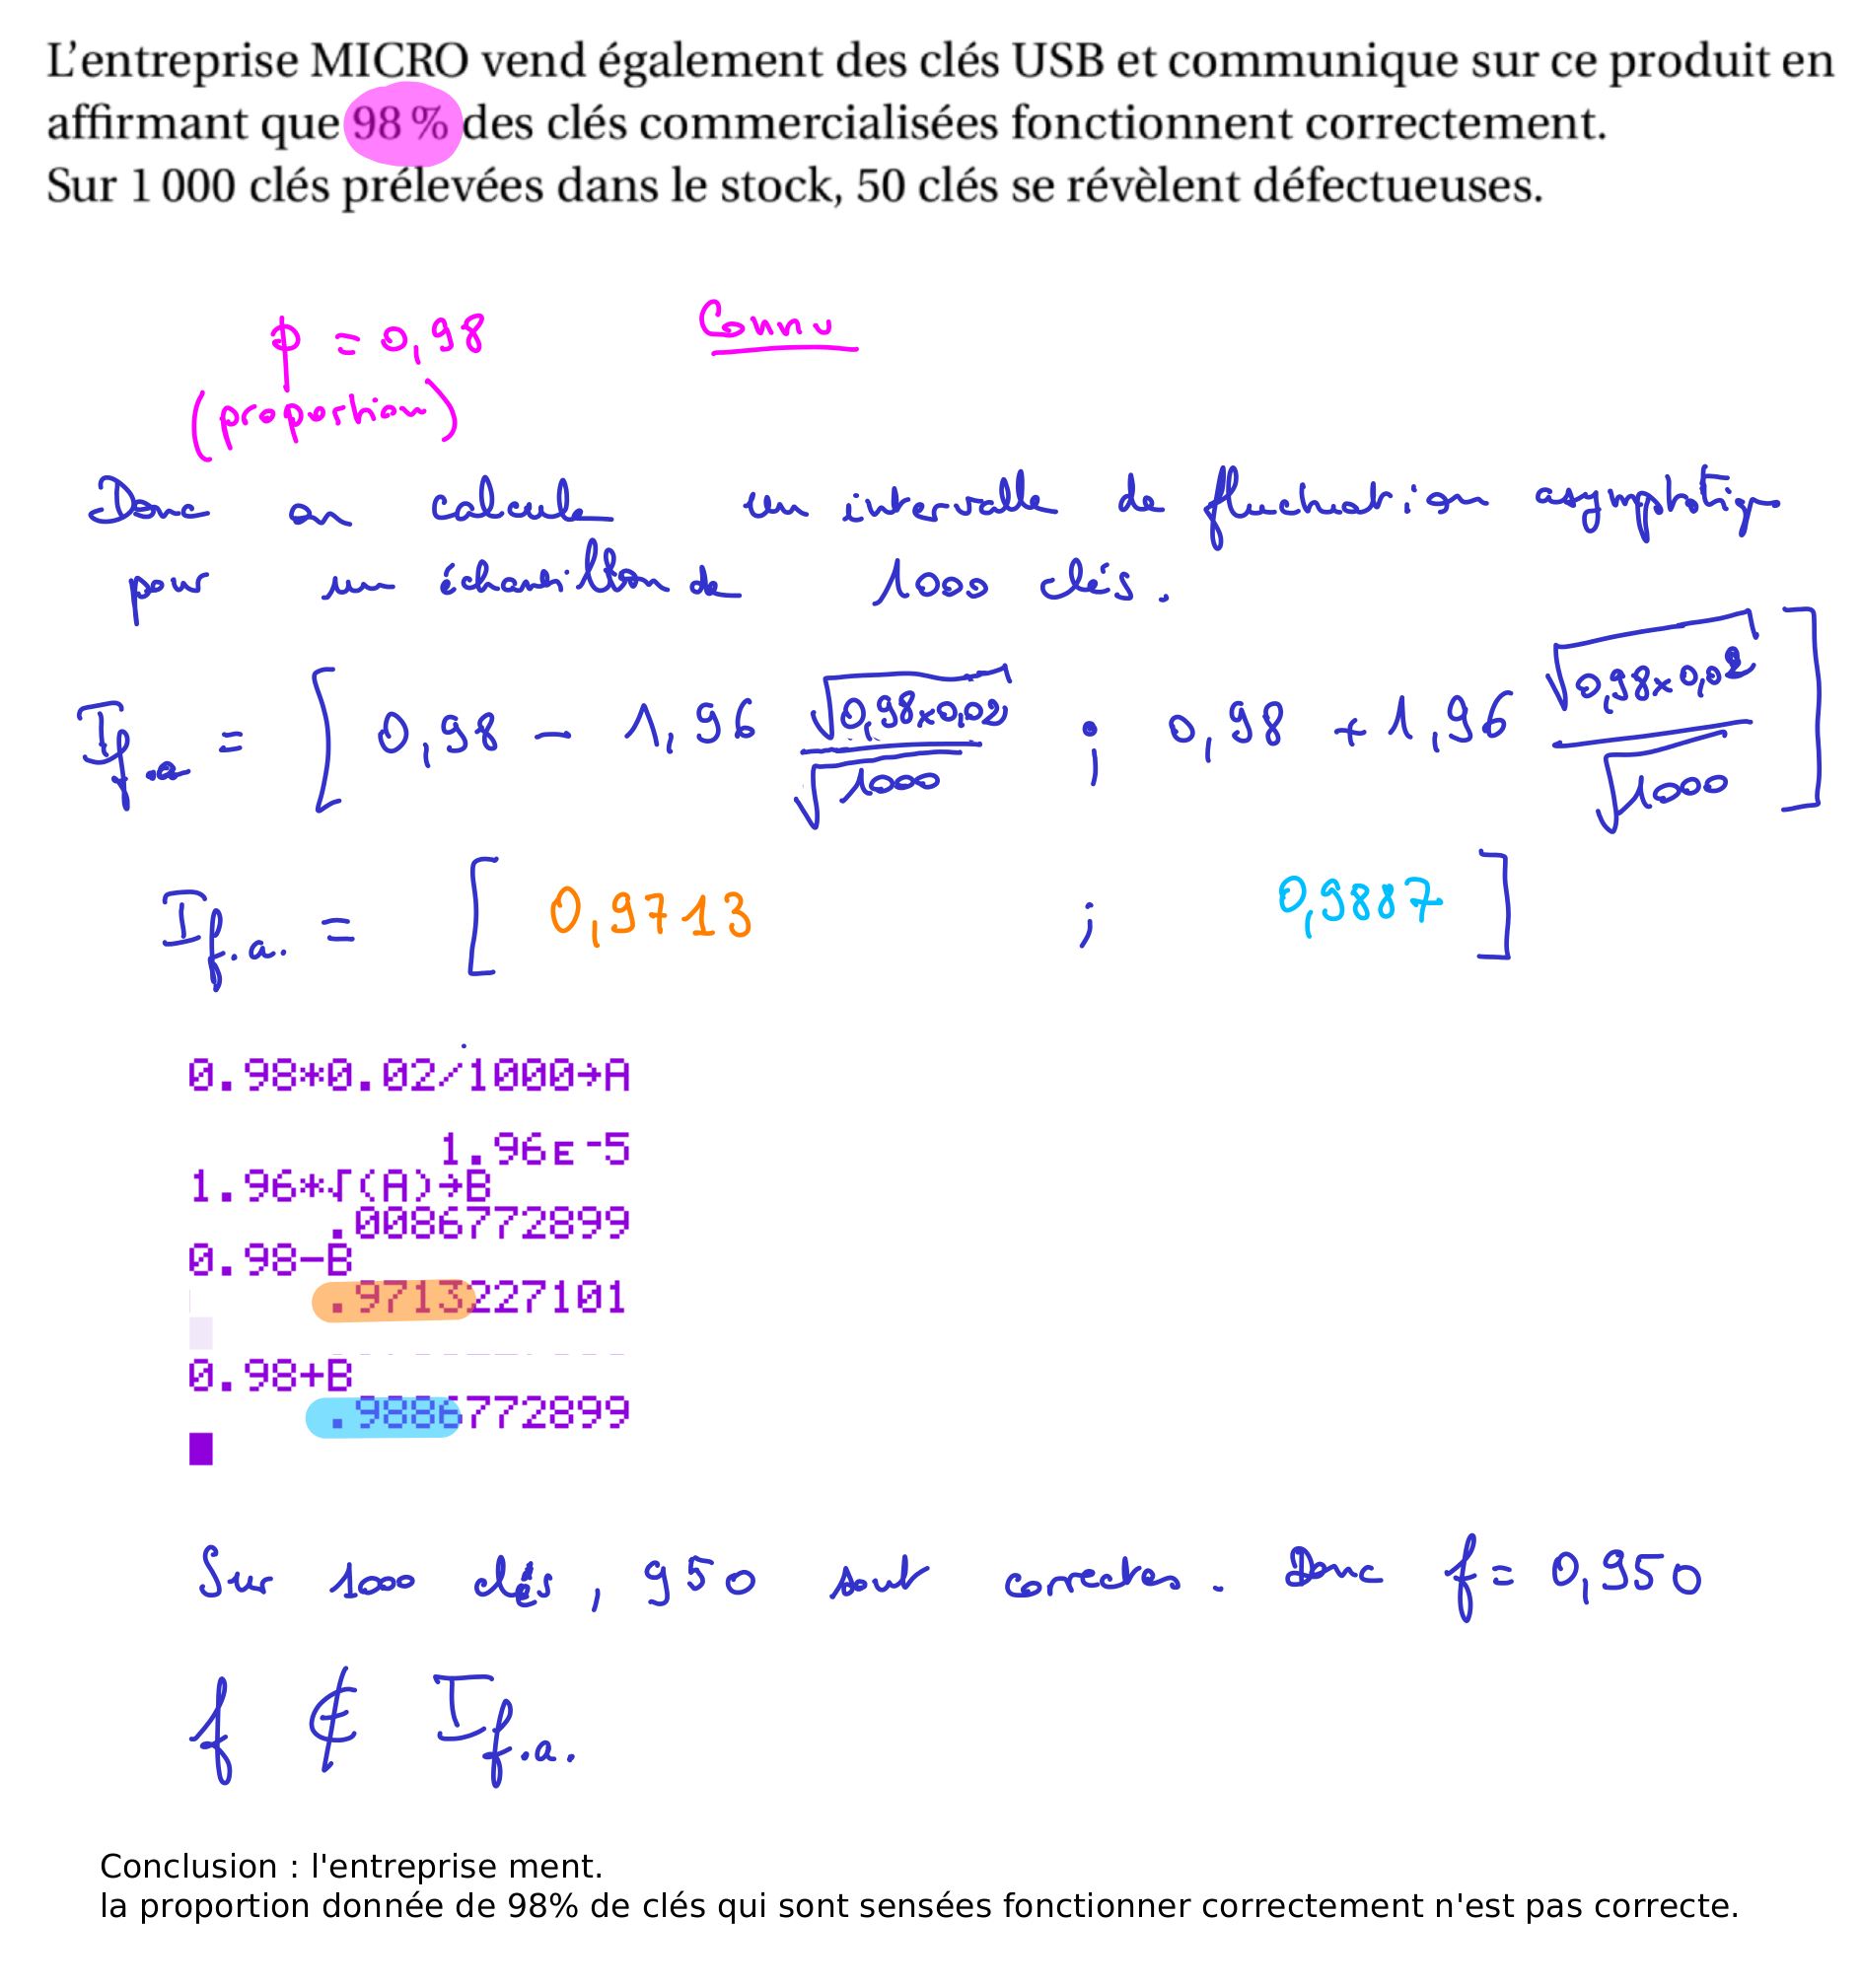 L’entreprise MICRO vend également des clés USB et communique sur ce produit en
affirmant que 98 % des clés commercialisées fonctionnent correctement.
Sur 1 000 clés prélevées dans le stock, 50 clés se révèlent défectueuses.
p = 0,98 Connu
(proportion)
Donc on calcule un intervalle de fluctuation asymptotique
pour un échantillon de 1000 clés.
If.a = [ 0,98 - 1,96 √(0,98×0,02)/√1000 ; 0,98 + 1,96 √(0,98×0,02)/√1000 ]
If.a. = [ 0,9713 ; 0,9887 ]
0.98*0.02/1000→A
1.96ᴇ-5
1.96*√(A)→B
.0086772899
0.98-B
.9713227101
0.98+B
.9886772899
Sur 1000 clés, 950 sont correctes. Donc f = 0,950
f ∉ If.a.
Conclusion : l'entreprise ment.
la proportion donnée de 98% de clés qui sont sensées fonctionner correctement n'est pas correcte.